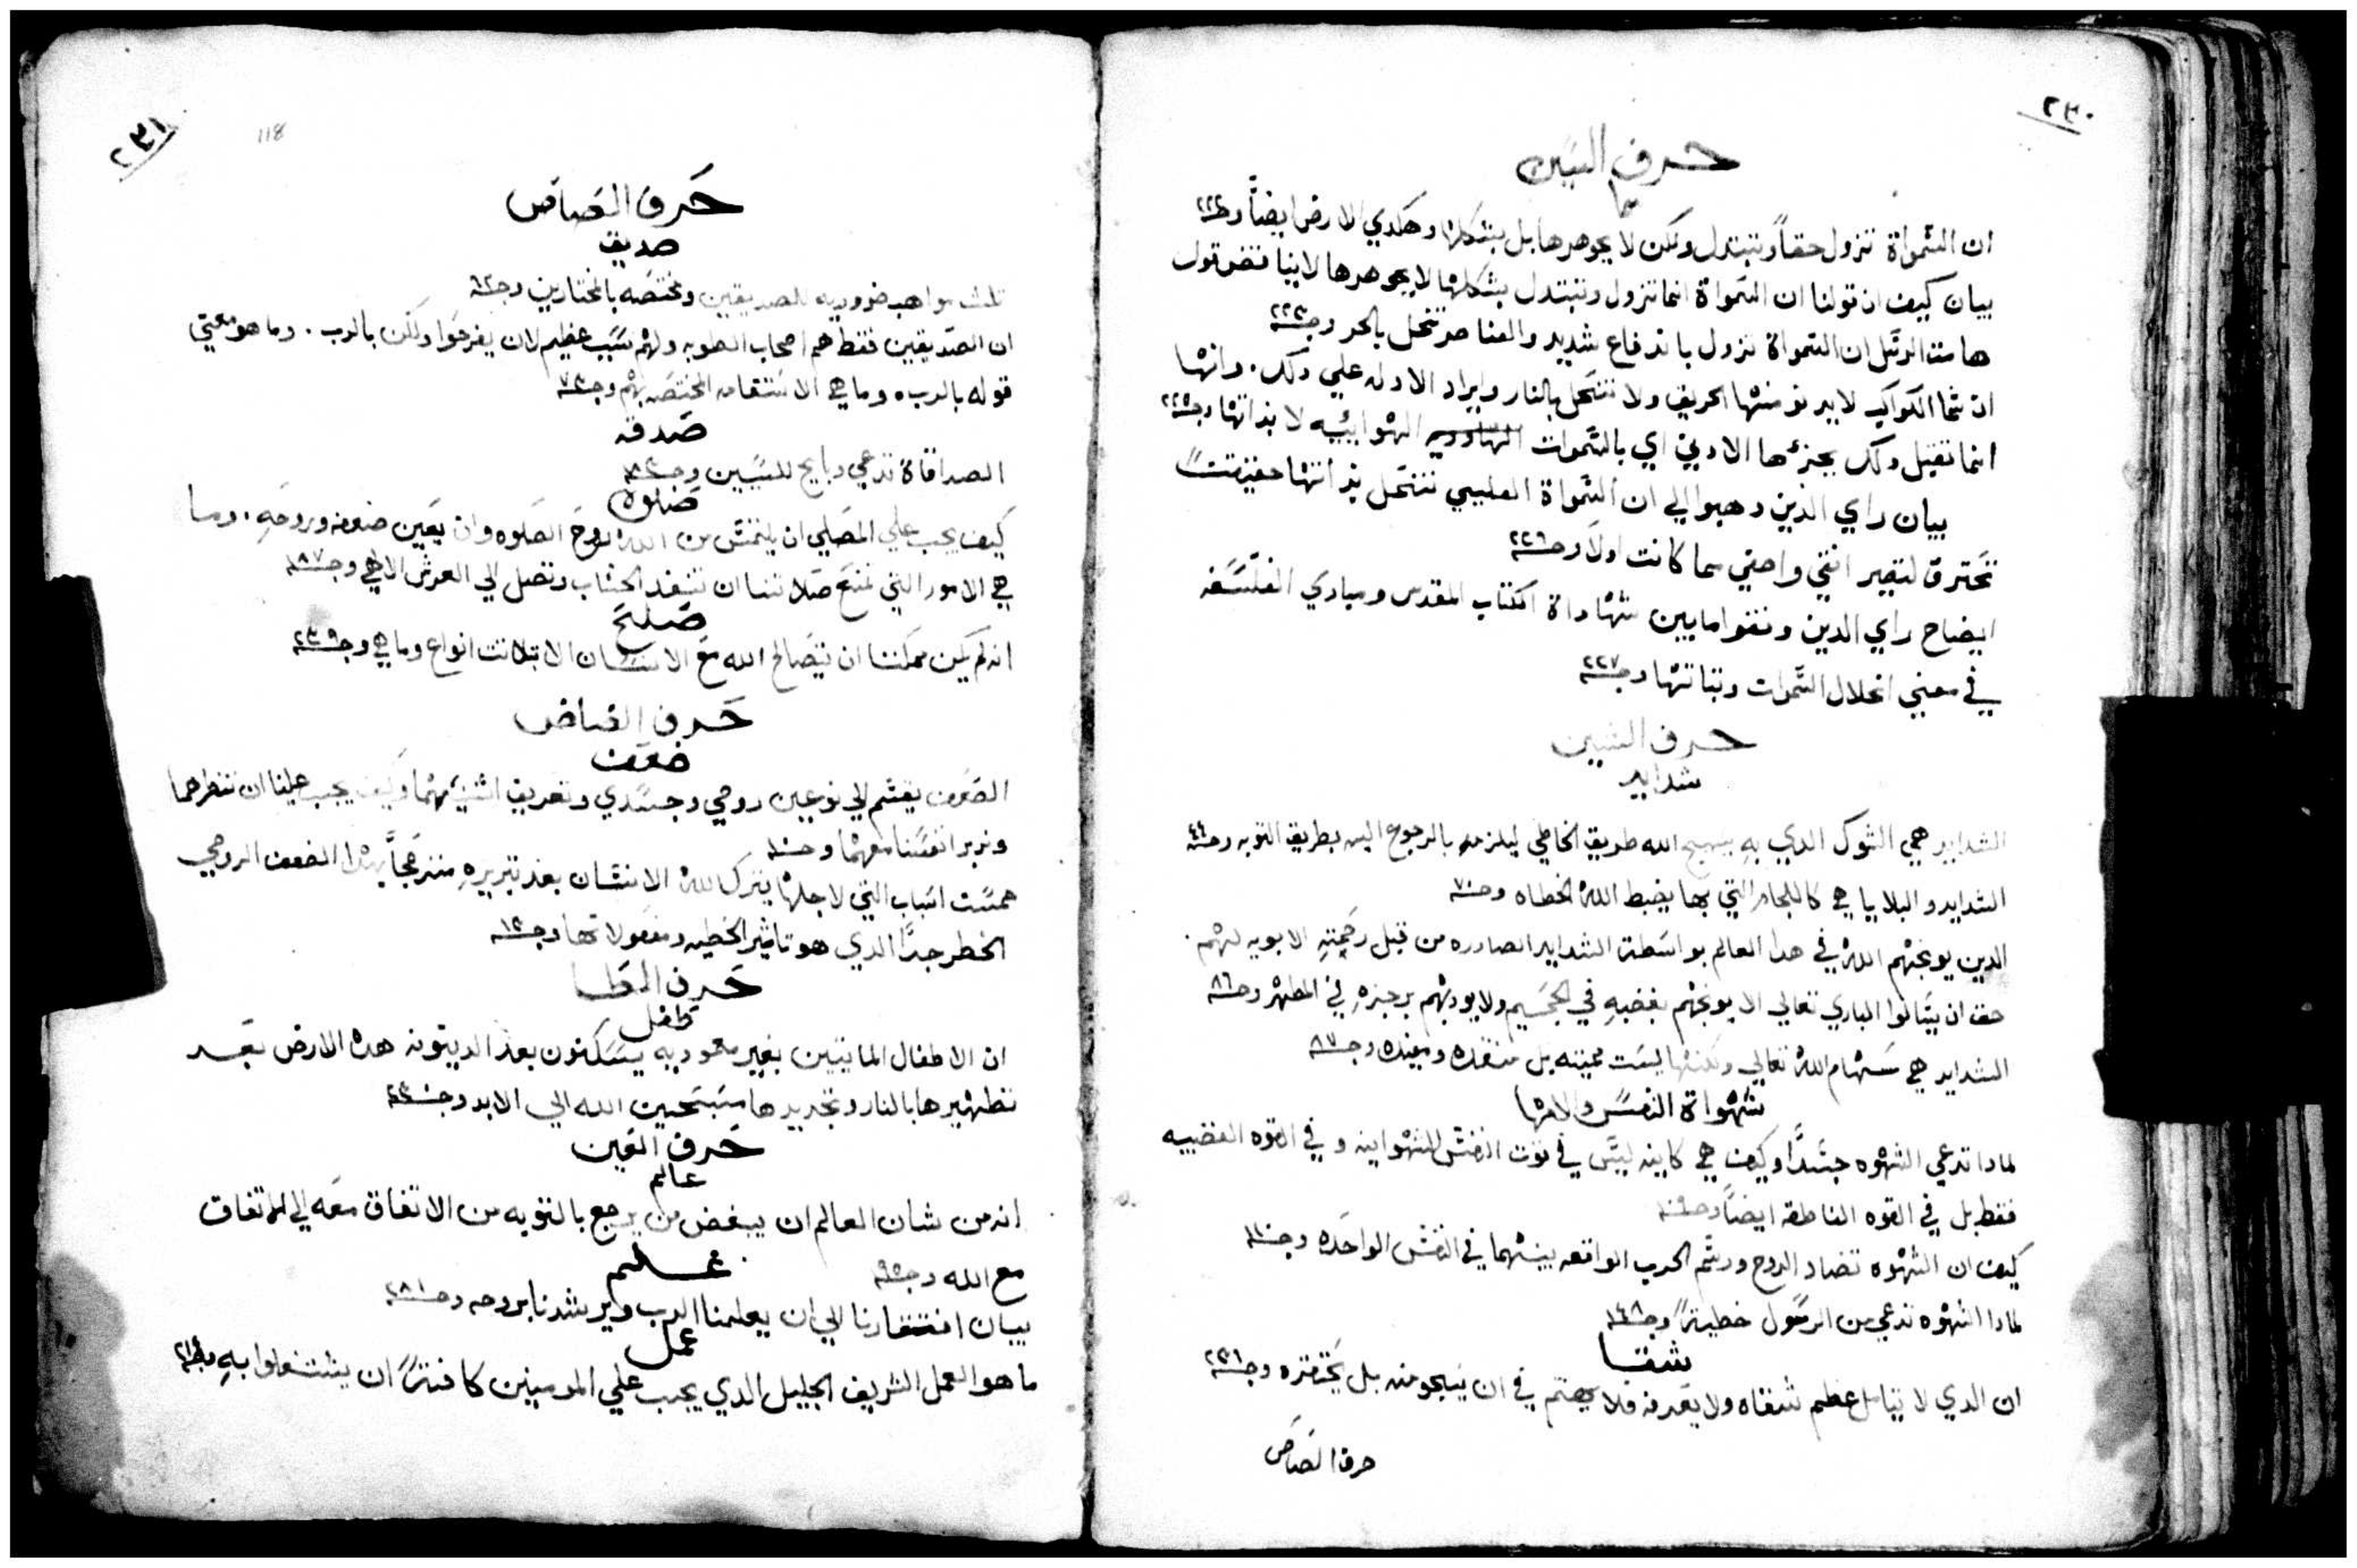 ٢٣٠
حرف السين
سما
ان السمواة تزول حقاً وتتبدل ولكن لا بجوهرها بل بشكلها وهكدي الارض ايضاً وجه ٢٢٢
بيان كيف ان قولنا ان السمواة انما تزول وتتبدل بشكلها لا بجوهرها لا يناقض قول
هامت الرسل ان السمواة تزول باندفاع شديد والعناصر تنحل بالحر وجه ٢٢٣
ان شما الكواكب لا يدنو منها الحريق ولا تنحل بالنار وايراد الادله علي دلك. وانها
انما تقبل دلك بجزءها الادني اي بالسموات الهوائيه لا بذاتها وجه ٢٢٥
بيان راي الدين دهبوا الي ان السمواة العليي تنحل بذاتها حقيقتاً
تحترق لتصير انقي واحسن مما كانت اولاً وجه ٢٢٦
ايضاح راي الدين وفقوا مابين شهاداة الكتاب المقدس ومبادي الفلسفه
في معني انحلال السموات وثباتها وجه ٢٢٧
حرف الشين
شدايد
الشدايد هي الشوك الدي به يسيج الله طريق الخاطي ليلزمه بالرجوع اليه بطريق التوبه وجه ٤٤
الشدايد والبلايا هي كاللجام التي بها يضبط الله الخطاه وجه ٧٠
الدين يوبخهم الله في هدا العالم بواسطة الشدايد الصادره من قبل رحمته الابويه لهم.
حق ان يسالوا الباري تعالي الا يوبخهم بغضبه في الجحيم ولا يودبهم برجزه في المطهر وجه ٨٦
الشدايد هي سهام الله تعالي ولكنها ليست مميته بل منقده ومفيده وجه ٨٧
شهواة النفس والامها
لمادا تدعي الشهوه جسداً وكيف هي كاينه ليس في قوت النفس الشهوانيه و في القوه الغضبيه
فقط بل في القوه الناطقه ايضاً وجه ١٠٩
كيف ان الشهوه تضاد الروح ورسم الحرب الواقعه بينهما في النفس الواحده وجه ١١٠
لمادا الشهوه تدعي من الرسول خطيةً وجه ١٤٨
شقا
ان الدي لا يتامل عظم شقاه ولا يعرفه فلا يهتم في ان ينجو منه بل يحتقره وجه ٢٣٦
حرف الصاص
٢٣١
118
حرف الصاص
صديق
تلت مواهب ضروريه للصديقين ومختصه بالمختارين وجه ٦٢
ان الصديقين فقط هم اصحاب الطوبه ولهم سبب عظيم لان يفرحوا ولكن بالرب. وما هو معني
قوله بالرب. وما هي الاستقامه المختصه بهم وجه ٧٣
صدقه
الصداقاة تدعي دبايح للسببين وجه ٨٢
صلوه
كيف يجب علي المصلي ان يلتمس من الله روح الصلوه وان يعين ضعفه وروحه. وما
هي الامور التي تمنع صلاتنا ان تنفد السحاب وتصل الي العرش الالهي وجه ١٨٧
صلح
انه لم يكن ممكننا ان يتصالح الله مع الانسان الا بتلاتت انواع وما هي وجه ٢٣٩
حرف الضاض
ضعف
الضعف يقسم الي نوعين روحي وجسدي وتعريف اثنينهما وكيف يجب علينا ان ننظرهما
وندبر انفسنا معهما وجه ١٠
خمست اسباب التي لاجلها يترك الله الانسان بعد تبريره منزعجاً بهدا الضعف الروحي
الخطر جداً الدي هو تاثير الخطيه ومفعولاتها وجه ١٢
حرف الطا
طفل
ان الاطفال المايتين بغير معموديه يسكنون بعد الدينونه هده الارض بعد
تطهيرها بالنار وتجديدها مسبحين الله الي الابد وجه ٢٣٠
حرف العين
عالم
انه من شان العالم ان يبغض من يرجع بالتوبه من الاتفاق معه الي الاتفاق
مع الله وجه ٩٥
علم
بيان افتقارنا الي ان يعلمنا الرب ويرشدنا بروحه وجه ٢٨١
عمل
ما هو العمل الشريف الجليل الدي يجب علي المومنين كافتاً ان يشتغلوا به